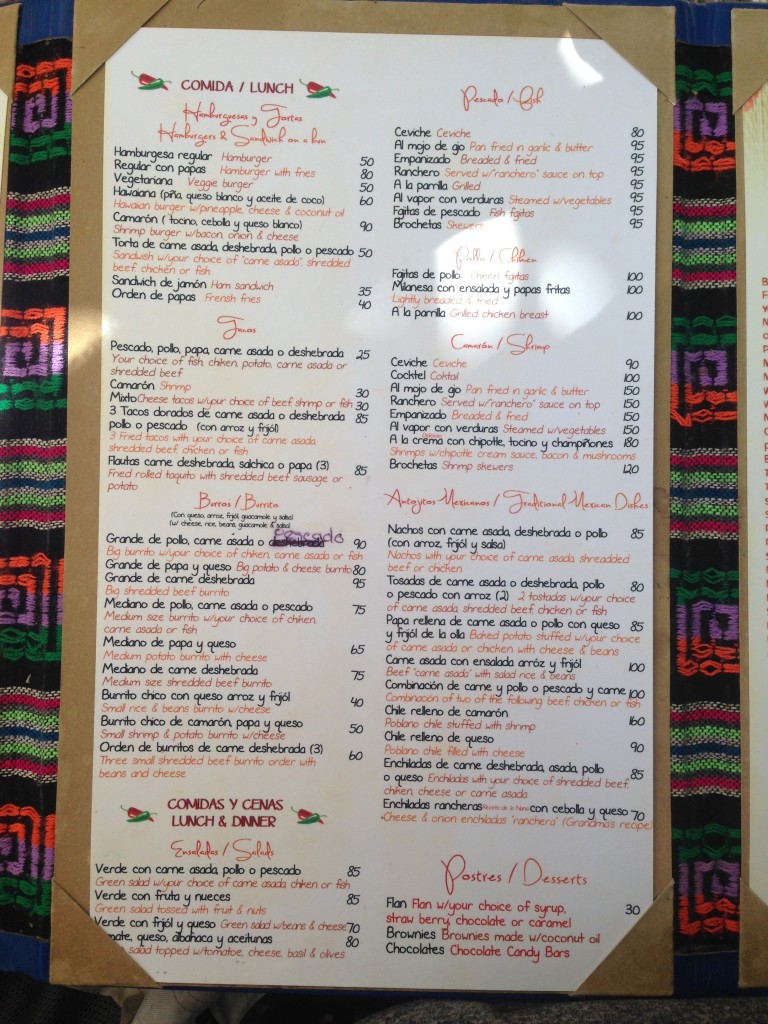 COMIDA / LUNCH
Hamburguesas y Tortas
Hamburgers & Sandwich on a bun
Hamburgesa regular Hamburger 50
Regular con papas Hamburger with fries 80
Vegetariana Veggie burger 50
Hawaiana (piña, queso blanco y aceite de coco) 60
Hawaian burger w/pineapple, cheese & coconut oil
Camarón ( tocino, cebolla y queso blanco) 90
Shrimp burger w/bacon, onion & cheese
Torta de carne asada, deshebrada, pollo o pescado 50
Sandwish w/your choice of "carne asada", shredded
beef, chicken or fish
Sandwich de jamón Ham sandwich 35
Orden de papas Frensh fries 40
Tacos
Pescado, pollo, papa, carne asada o deshebrada 25
Your choice of fish, chiken, potato, carne asada or
shredded beef
Camarón Shrimp 30
Mixto Cheese tacos w/your choce of beef, shrimp or fish 30
3 Tacos dorados de carne asada o deshebrada 85
pollo o pescado (con arroz y frijól)
3 Fried tacos with your choice of carne asada,
shredded beef, chicken or fish
Flautas carne deshebrada, salchica o papa (3) 85
Fried rolled taquito with shredded beef sausage or
potato
Burros / Burrito
(Con queso, arroz, frijól, guacamole y salsa)
(w/ cheese, rice, beans, guacamole & salsa)
Grande de pollo, carne asada o deshebrada Pescado 90
Big burrito w/your choice of chiken, carne asada or fish
Grande de papa y queso Big potato & cheese burrito 80
Grande de carne deshebrada 95
Big shredded beef burrito
Mediano de pollo, carne asada o pescado 75
Medium size burrito w/your choice of chiken,
carne asada or fish
Mediano de papa y queso 65
Medium potato burrito with cheese
Mediano de carne deshebrada 75
Medium size shredded beef burrito
Burrito chico con queso arroz y frijól 40
Small rice & beans burrito w/cheese
Burrito chico de camarón, papa y queso 50
Small shrimp & potato burrito w/cheese
Orden de burritos de carne deshebrada (3) 60
Three small shredded beef burrito order with
beans and cheese
COMIDAS Y CENAS
LUNCH & DINNER
Ensaladas / Salads
Verde con carne asada, pollo o pescado 85
Green salad w/your choice of carne asada, chiken or fish
Verde con fruta y nueces 85
Green salad tossed with fruit & nuts
Verde con frijól y queso Green salad w/beans & cheese 70
queso, albahaca y aceitunas 80
salad topped w/tomatoe, cheese, basil & olives
Pescado / Fish
Ceviche Ceviche 80
Al mojo de ajo Pan fried in garlic & butter 95
Empanizado Breaded & fried 95
Ranchero Served w/"ranchero" sauce on top 95
A la parrilla Grilled 95
Al vapor con verduras Steamed w/vegetables 95
Fajitas de pescado Fish fajitas 95
Brochetas Skewers 95
Pollo / Chiken
Fajitas de pollo Chiken fajitas 100
Milanesa con ensalada y papas fritas 100
Lightly breaded & fried
A la parrilla Grilled chicken breast 100
Camarón / Shrimp
Ceviche Ceviche 90
Cocktel Coktail 100
Al mojo de ajo Pan fried in garlic & butter 150
Ranchero Served w/"ranchero" sauce on top 150
Empanizado Breaded & fried 150
Al vapor con verduras Steamed w/vegetables 150
A la crema con chipotle, tocino y champiñones 180
Shrimps w/chipotle cream sauce, bacon & mushrooms
Brochetas Shrimp skewers 120
Antojitos Mexicanos / Traditional Mexican Dishes
Nachos con carne asada, deshebrada o pollo 85
(con arroz, frijól y salsa)
Nachos with your choice of carne asada, shreadded
beef or chicken
Tosadas de carne asada o deshebrada, pollo 80
o pescado con arroz (2) 2 tostadas w/your choice
of carne asada, shredded beef, chicken or fish
Papa rellena de carne asada o pollo con queso 85
y frijól de la olla Baked potato stuffed w/your choice
of carne asada or chicken with cheese & beans
Carne asada con ensalada arróz y frijól 100
Beef "carne asada" with salad rice & beans
Combinación de carne y pollo o pescado y carne 100
Combination of two of the following beef, chicken or fish
Chile relleno de camarón 160
Poblano chile stuffed with shrimp
Chile relleno de queso 90
Poblano chile filled with cheese
Enchiladas de carne deshebrada, asada, pollo 85
o queso Enchiladas with your choice of shredded beef,
chiken, cheese or carne asada
Enchiladas rancheras Receta de la Nana con cebolla y queso 70
Cheese & onion enchiladas "ranchera" (Grandma's recipe)
Postres / Desserts
Flan Flan w/your choice of syrup, 30
straw berry, chocolate or caramel
Brownies Brownies made w/coconut oil
Chocolates Chocolate Candy Bars